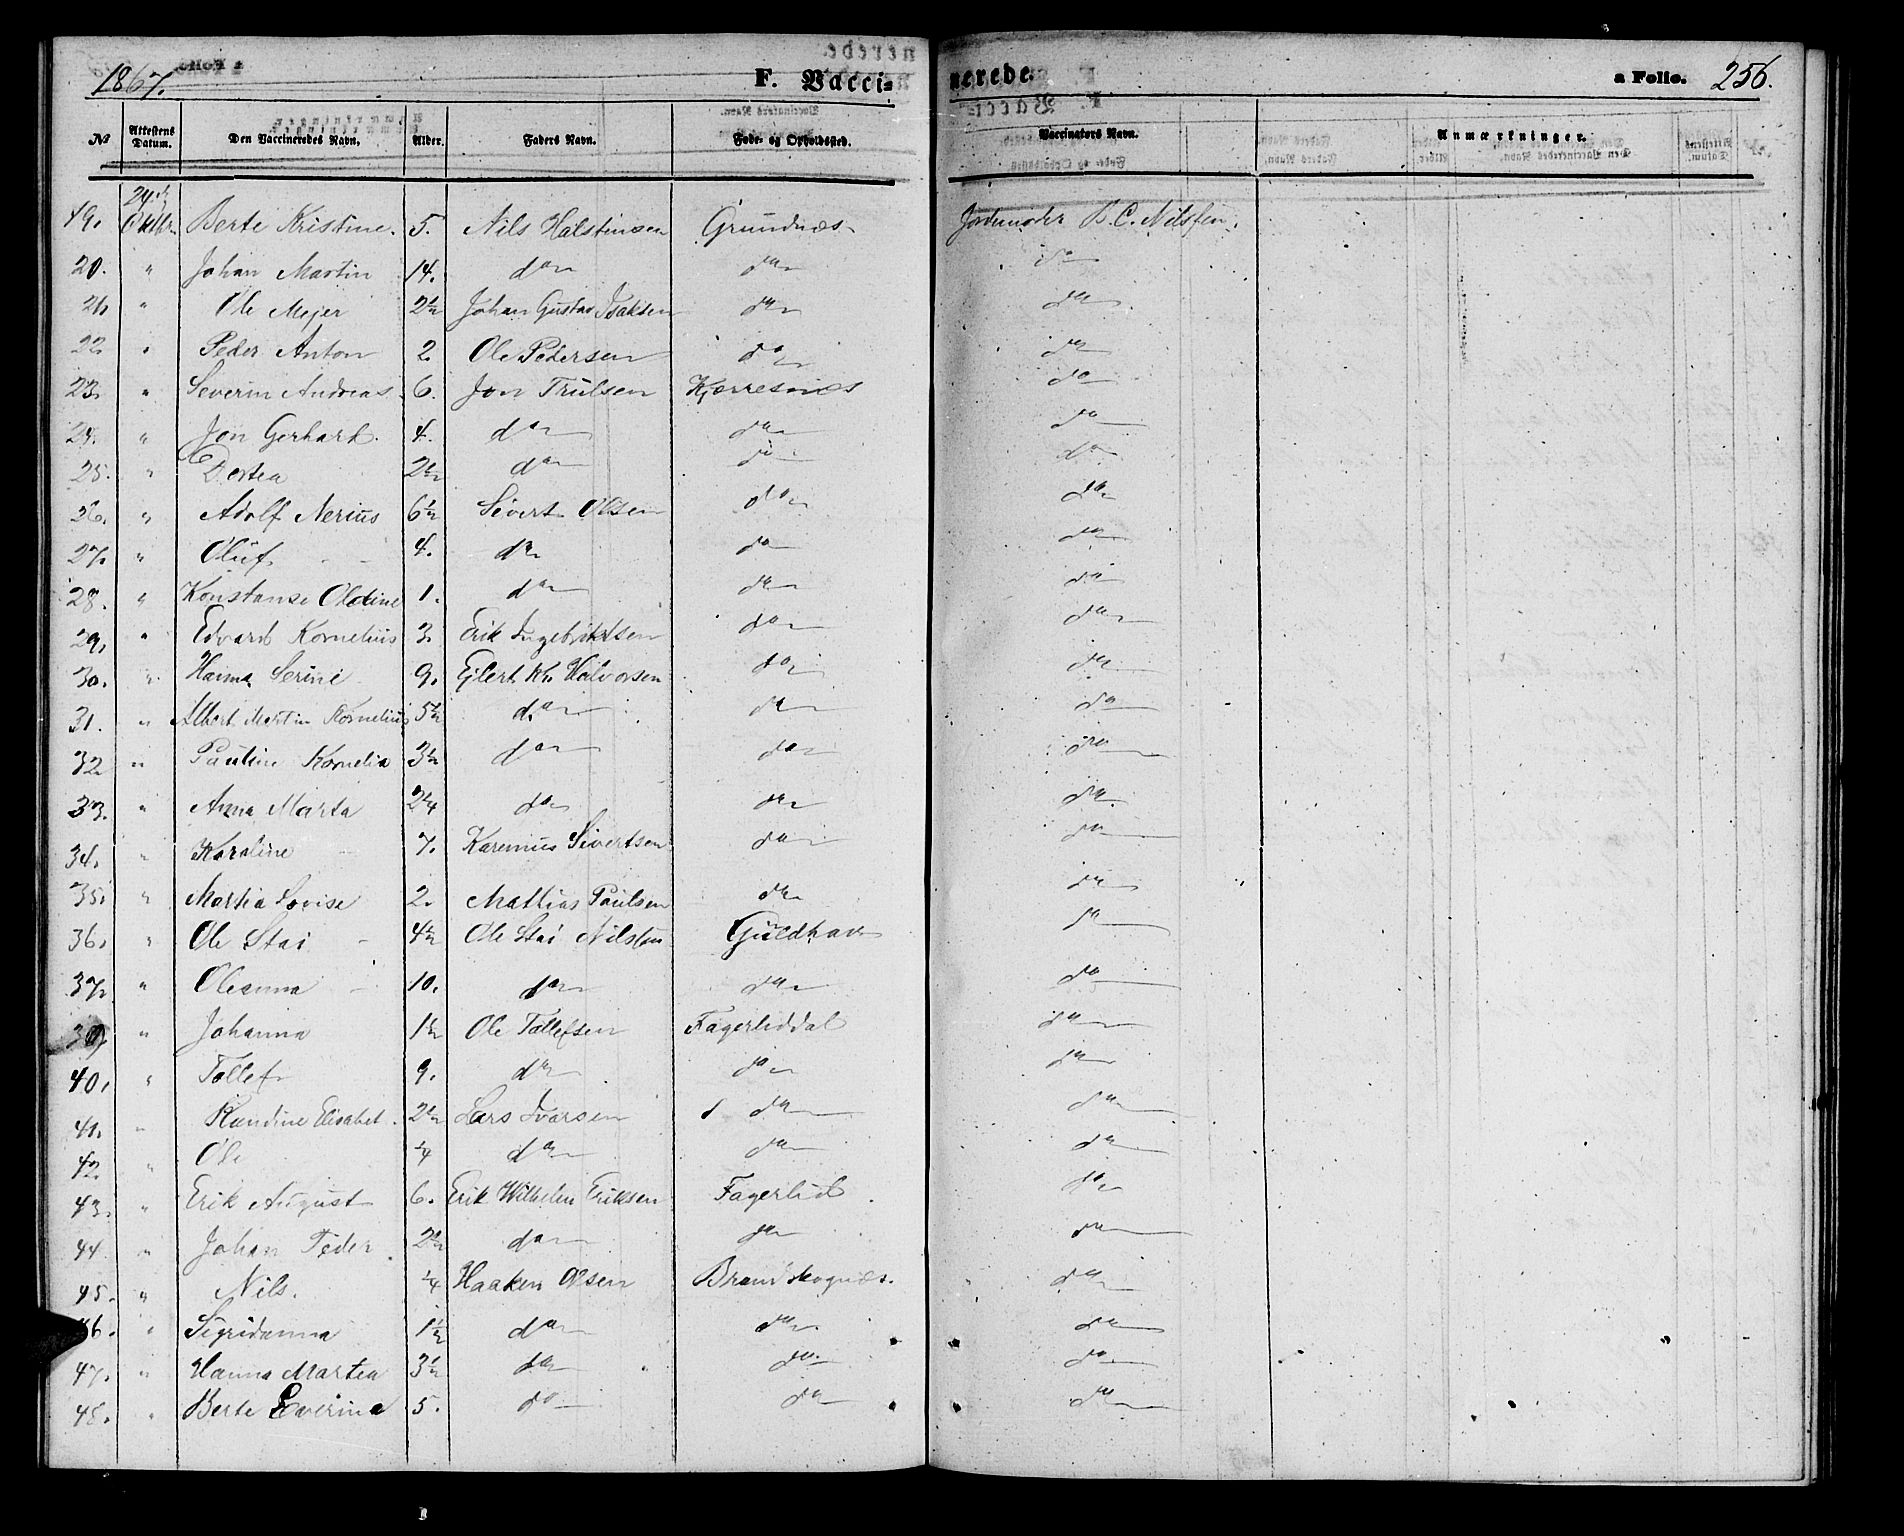 1867. F. Vacci=nerede. a Folio. 256.
№ Attestens Datum. Den Vaccineredes Navn. Alder. Faders Navn. Føde- og Opholdssted. Vaccinators Navn. Anmærkninger.
19. 24de Oktbr. Berte Kristine. 5. Nils Halstensen Grundnæs Jordemoder B. C. Nilssen.
20. " Johan Martin 14. do do do
21. " Ole Mejer 2½ Johan Gustav Isaksen do do
22. " Peder Anton 2. Ole Pedersen do do
23. " Severin Andreas 6. Jon Trulsen Kjerresnes do
24. " Jon Gerhart. 4. do do do
25. " Dortea 2½ do do do
26. " Adolf Nerius 6½ Sivert Olsen do do
27. " Oluf 4. do do do
28. " Konstanse Oldine 1. do do do
29. " Edvard Kornelius 3. Erik Ingebriktsen do do
30. " Hanna Serine 9. Ejlert Kr. Halvorsen do do
31. " Albert Martin Kornelius 5½ do do do
32 " Pauline Kornelia 3½ do do do
33. " Anna Marta 2¼ do do do
34. " Karoline 7. Karenius Sivertsen do do
35. " Martia Lovise 2. Mathias Paulsen do do
36. " Ole Stai 4½ Ole Stai Nilsen Guldhav do
37. " Oleanna 10. do do do
39 " Johanna 1½ Ole Tollefsen Fagerliddal do
40. " Tollef 9. do do do
41. " Randine Elisabet. 2½ Lars Ivarsen do do
42 " Ole ¼ do do do
43. " Erik August 6. Erik Wilhelm Eriksen Fagerlid do
44. " Johan Peder. 2½ do do do
45. " Nils. ¼ Haaken Olsen Brandskognæs. do
46. " Sigridanna 1½ do do do
47. " Hanna Martea 3½ do do do
48. " Berte Everine 5. do do do